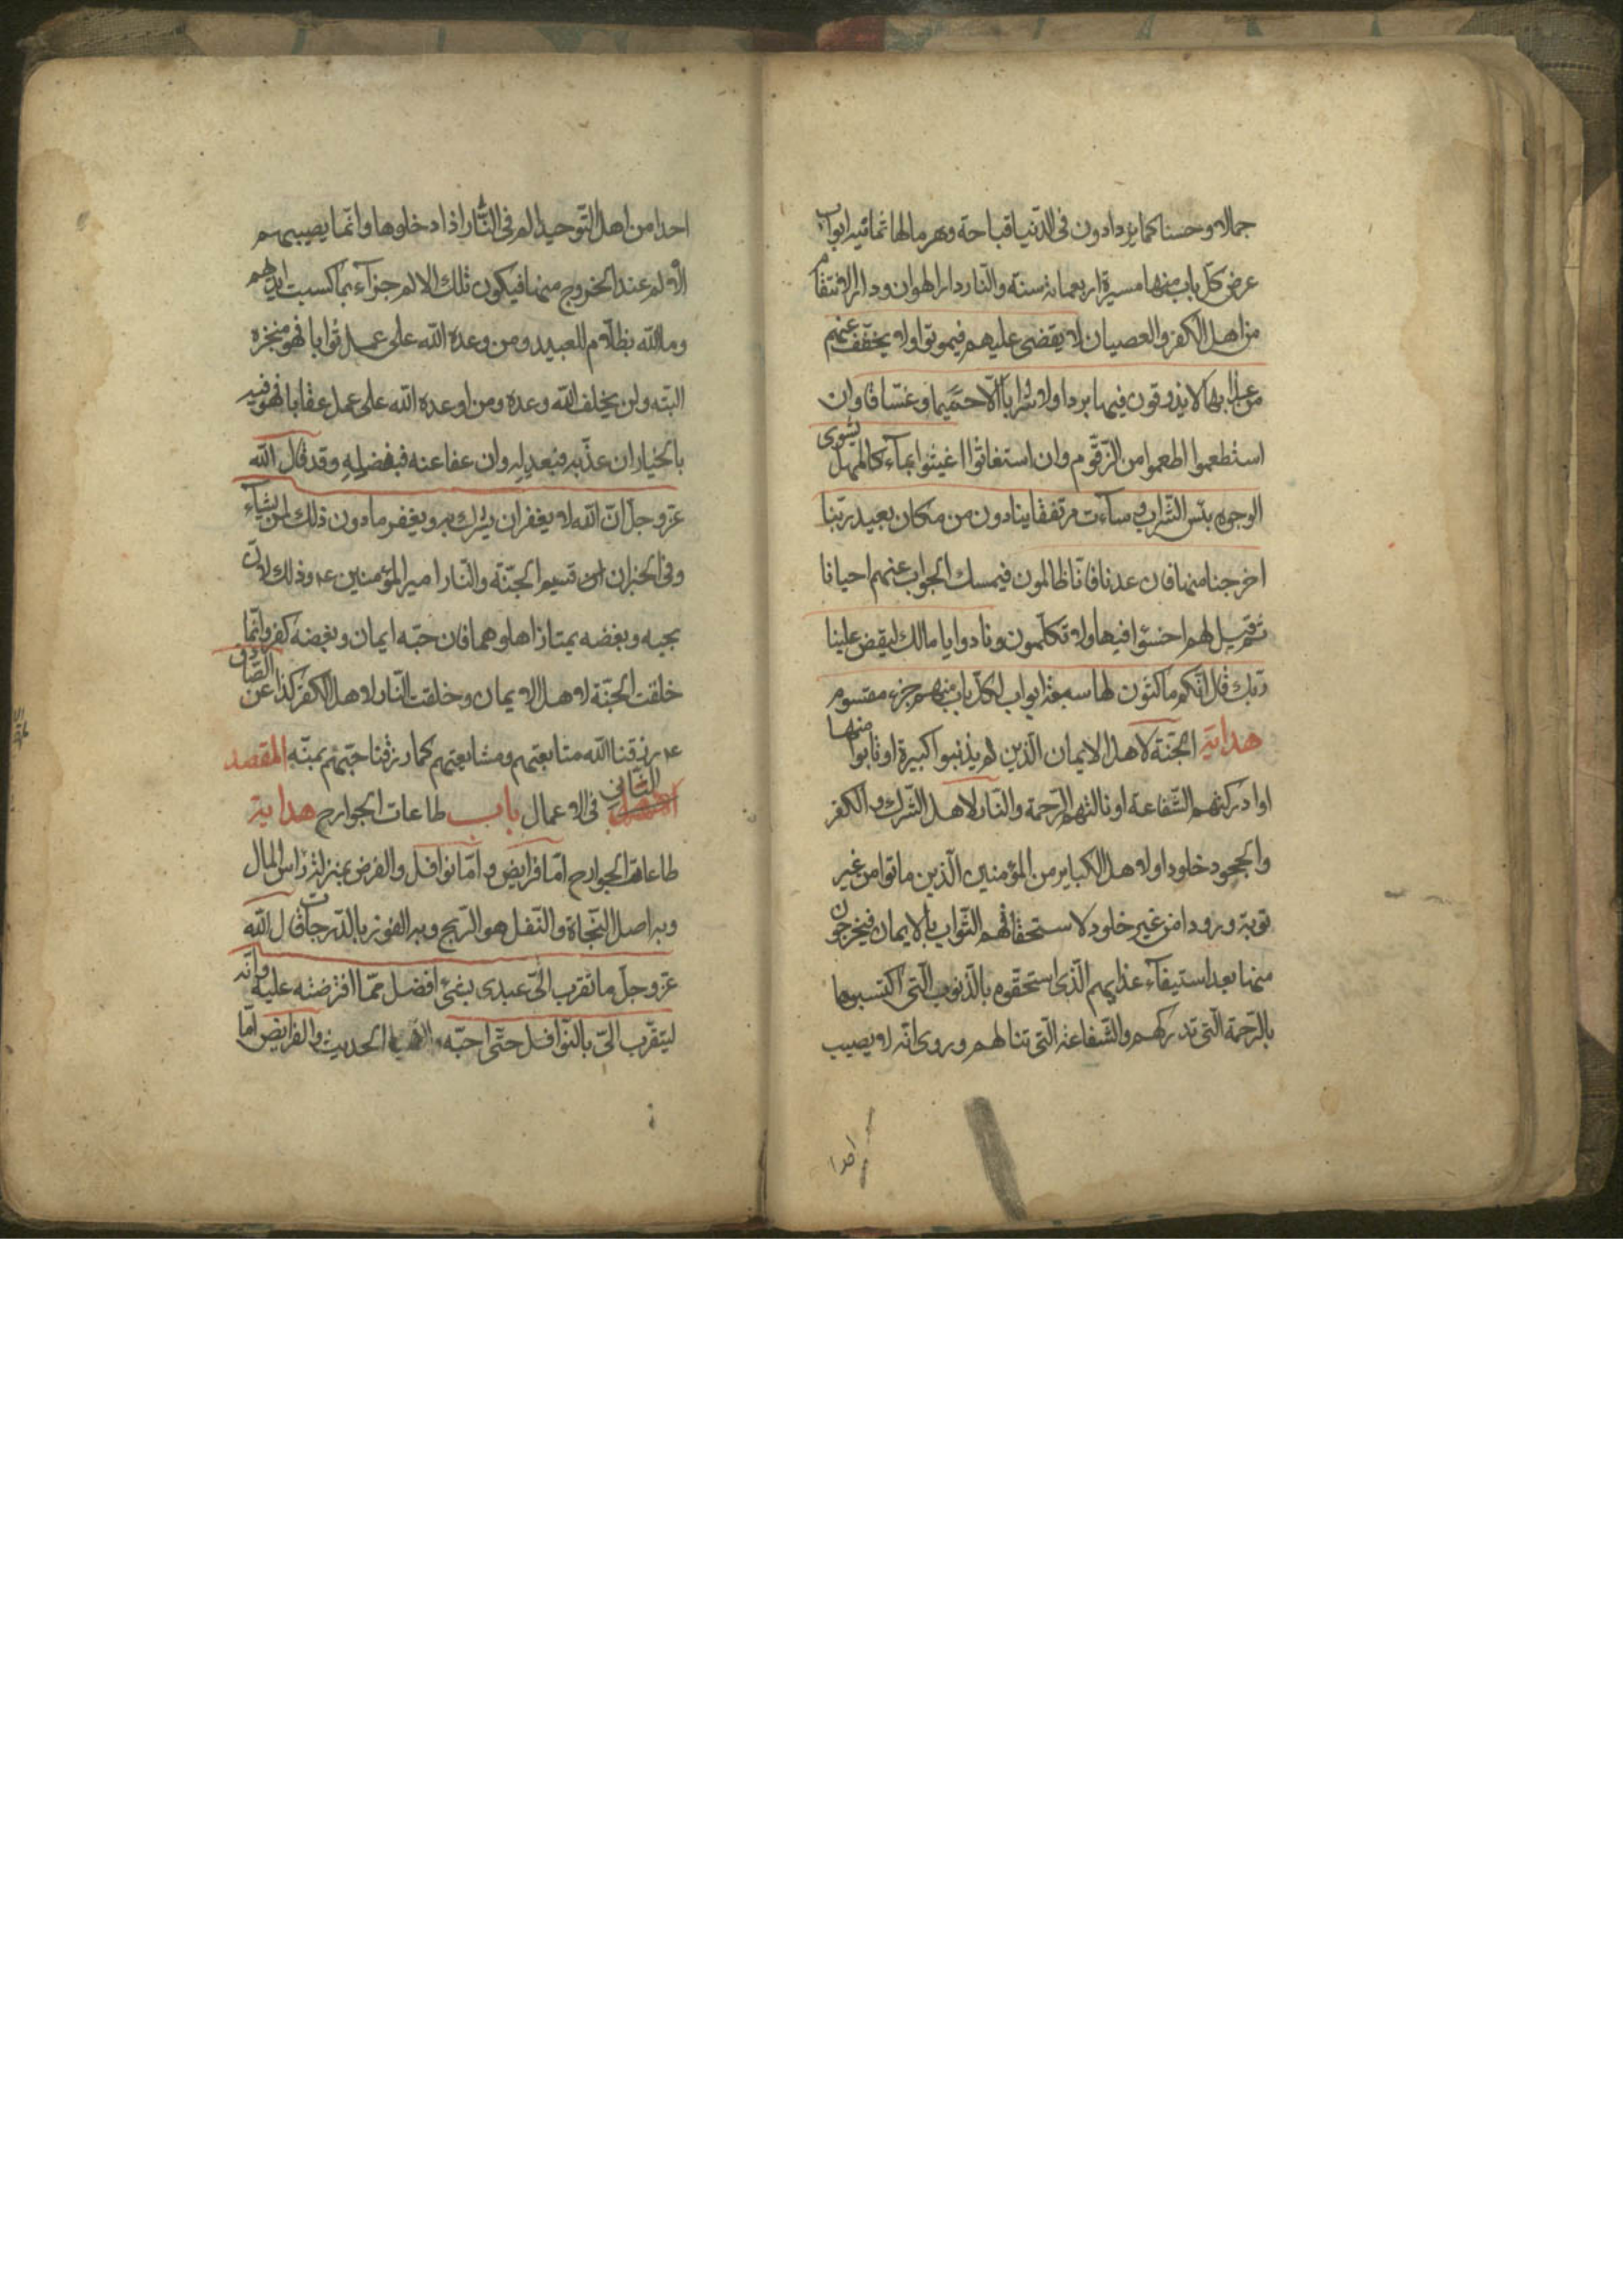 جمالا وحسنا كما يزدادون فى الدنيا قباحة وهرما لها ثمانية ابواب
عرض كل باب منها مسيرة اربعمائة سنة والنار دار الهوان ودار الانتقام
من اهل الكفر والعصيان لا يقضى عليهم فيموتوا ولا يخفف عنهم
من عذابها لا يذوقون فيها بردا ولا شرابا الا حميما وغساقا وان
استطعموا اطعموا من الزقوم وان استغاثوا اغيثوا بماء كالمهل يشوى
الوجوه بئس الشراب وساءت مرتفقا ينادون من مكان بعيد ربنا
اخرجنا منها فان عدنا فانا ظالمون فيمسك الجواب عنهم احيانا
ثم قيل لهم اخسئوا فيها ولا تكلمون ونادوا يا مالك ليقض علينا
ربك قال انكم ماكثون لها سبعة ابواب لكل باب منهم جزء مقسوم
هداية الجنة لاهل الايمان الذين لم يذنبوا كبيرة او تابوا منها
او ادركتهم الشفاعة او نالتهم الرحمة والنار لاهل الشرك والكفر
والجحود خلودا ولاهل الكباير من المؤمنين الذين ماتوا من غير
توبة ورودا من غير خلود لاستحقاقهم الثواب بالايمان فيخرجون
منها بعد استيفاء عذابهم الذى استحقوه بالذنوب التى اكتسبوها
بالرحمة التى تدركهم والشفاعة التى تنالهم وروى انه لا يصيب
احدا
احدا من اهل التوحيد الم فى النار اذا دخلوها وانما يصيبهم
الالم عند الخروج منها فيكون تلك الالام جزاء بما كسبت ايديهم
وما الله بظلام للعبيد ومن وعده الله على عمل ثوابا فهو منجزه
البته ولن يخلف الله وعده ومن اوعده الله على عمل عقابا فهو فيه
بالخيار ان عذبه فبعدله وان عفا عنه فبفضله وقد قال الله
عز وجل ان الله لا يغفر ان يشرك به ويغفر ما دون ذلك لمن يشاء
وفى الخبر ان قسيم الجنة والنار امير المؤمنين ع وذلك لان
بحبه وبغضه يمتاز اهلوهما فان حبه ايمان وبغضه كفر وانما
خلقت الجنة لاهل الايمان وخلقت النار لاهل الكفر كذا عن الصادق
ع رزقنا الله متابعتهم ومشايعتهم كما رزقنا حبهم بمنه المقصد
الثانى فى الاعمال باب طاعات الجوارح هداية
طاعات الجوارح اما فرايض واما نوافل والفرض بمنزلة راس المال
وبه اصل النجاة والنفل هو الربح وبه الفوز بالدرجات قال الله
عز وجل ما تقرب الى عبدى بشئ افضل مما افترضته عليه وانه
ليتقرب الى بالنوافل حتى احبه الحديث والفرايض اما